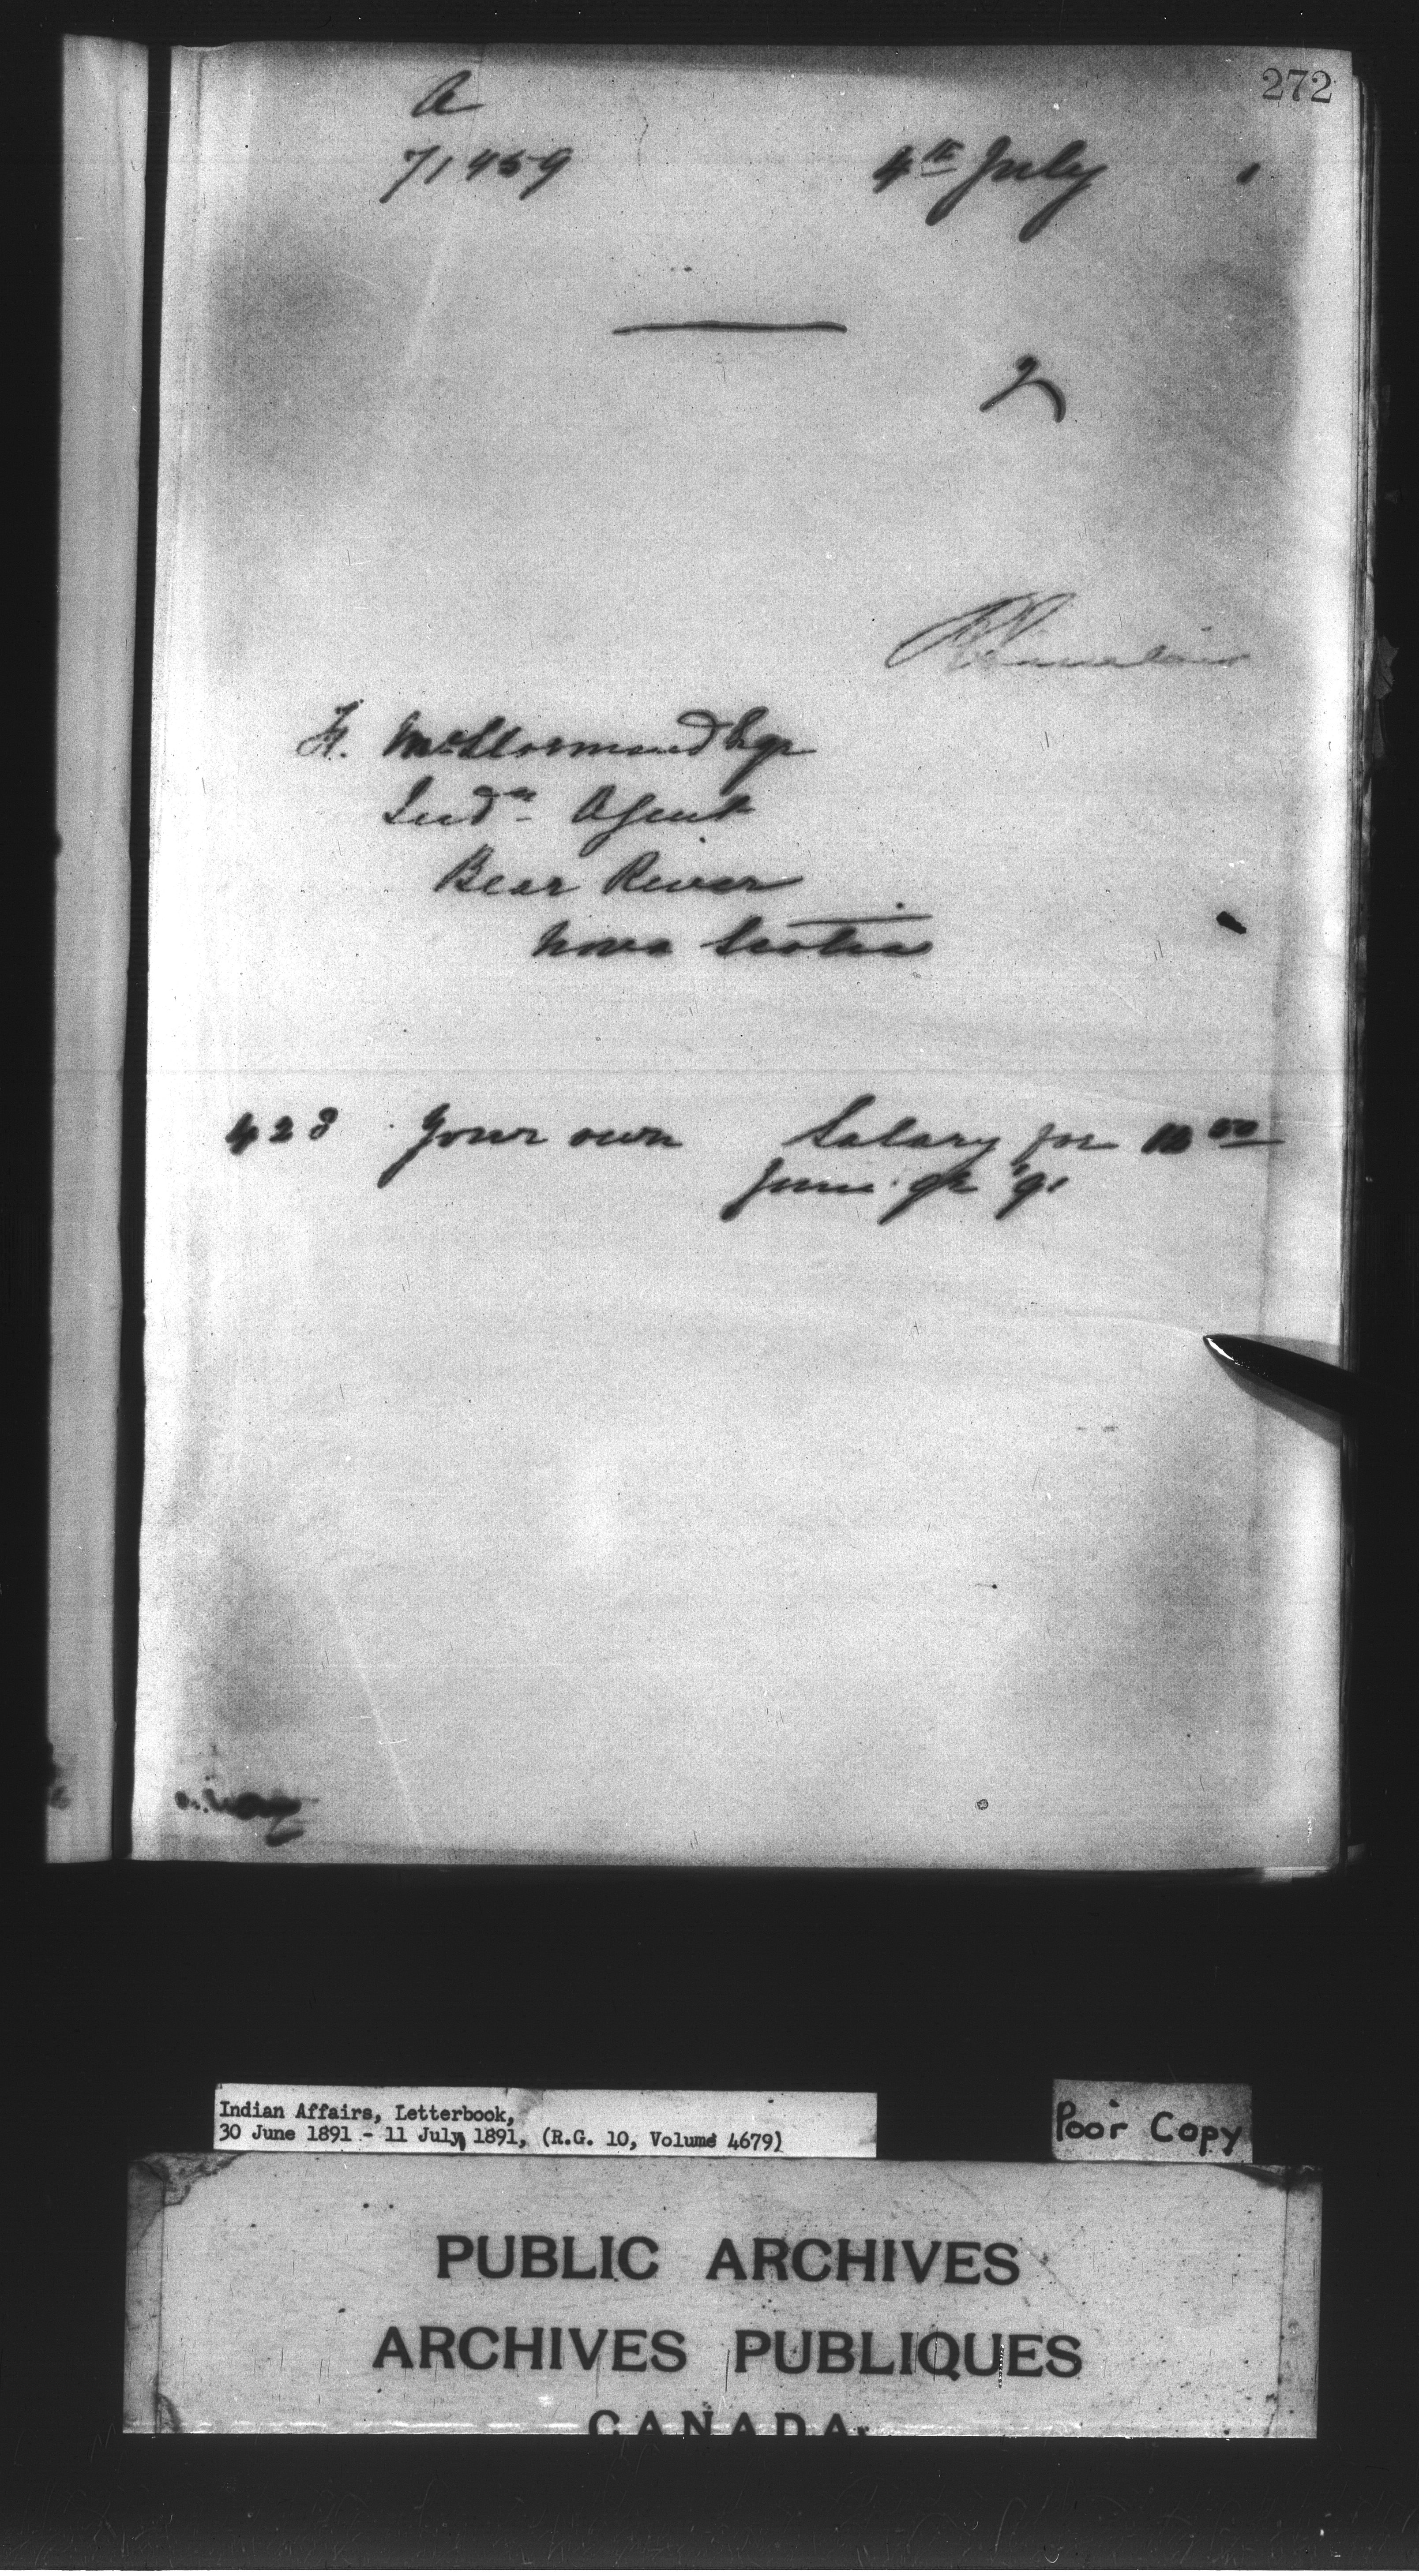 272
A
71459 4th July 1
2
F. McDormand Esqr
Indn Agent
Bear River
Nova Scotia
423 Your own Salary for 12 50
June qr '91
Indian Affairs, Letterbook,
30 June 1891 - 11 July 1891, (R.G. 10, Volume 4679)
Poor Copy
PUBLIC ARCHIVES
ARCHIVES PUBLIQUES
CANADA